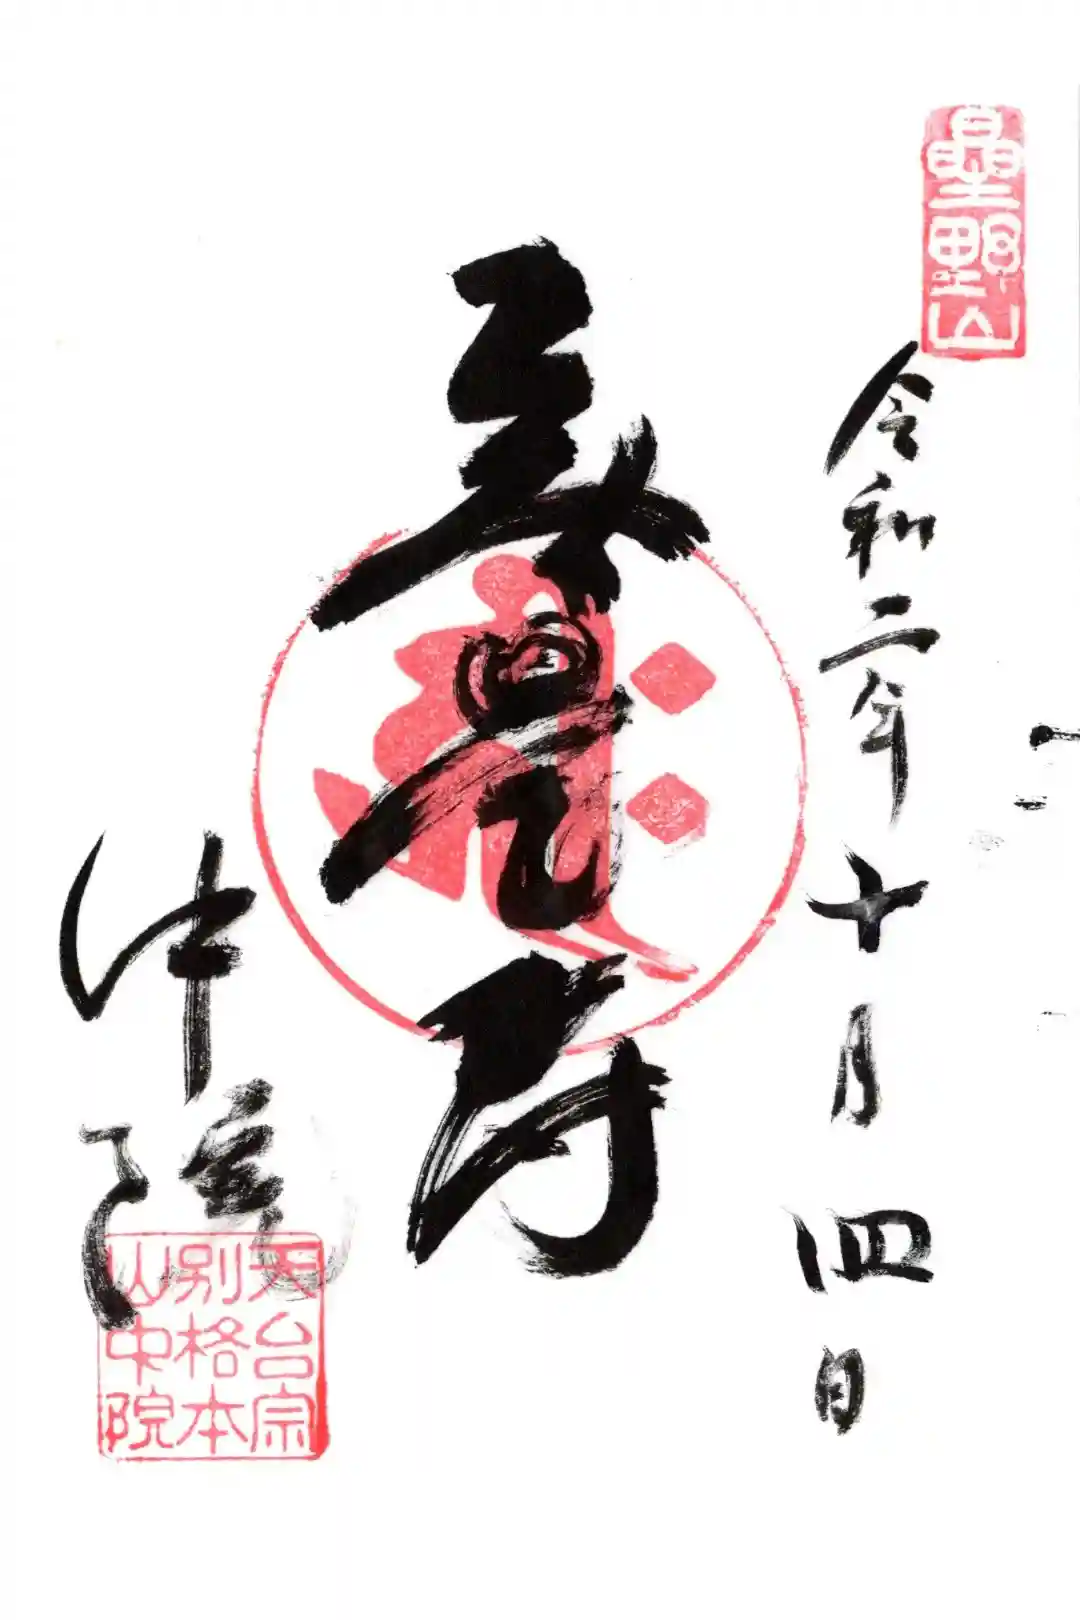 星野山
令和二年十月四日
無量寿
中院
天台宗
別格本
山中院